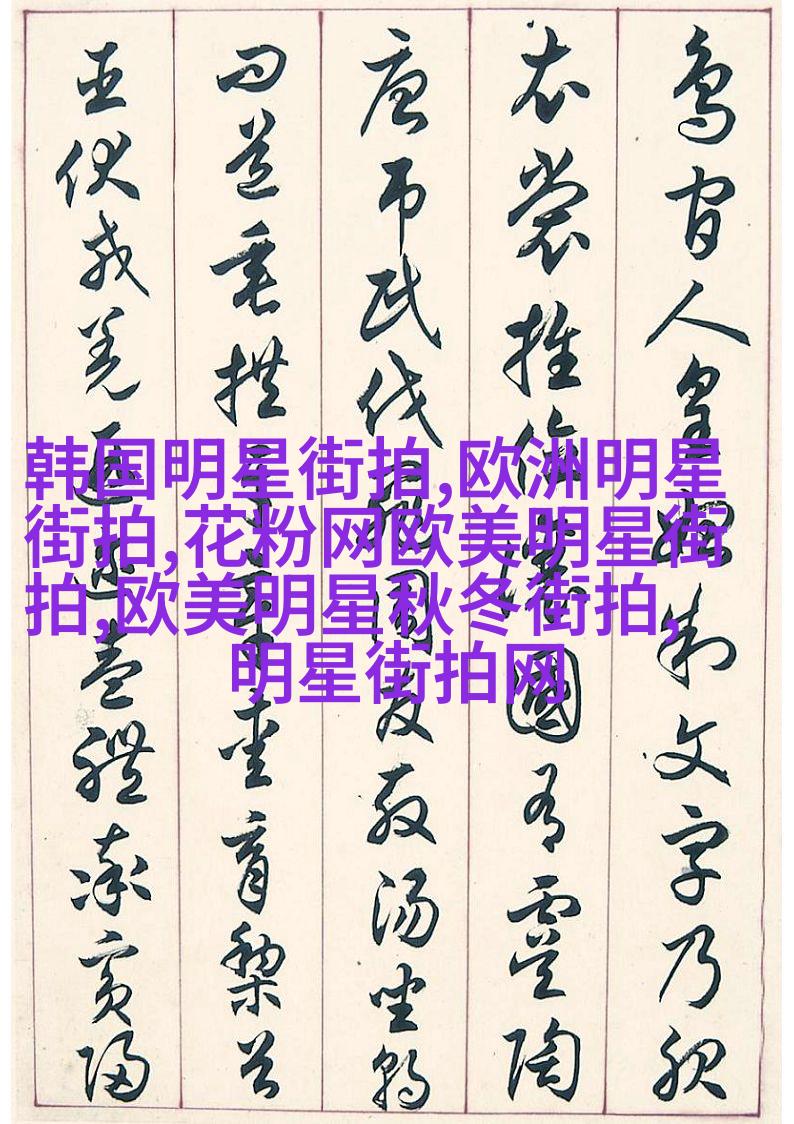 韩国明星街拍,欧洲明星
街拍,花粉网欧美明星街
拍,欧美明星秋冬街拍,
明星街拍网
鳥官人皇始制文字乃服
衣裳推位讓國有虞陶
唐吊民伐罪周发殷汤坐朝
问道垂拱平章爱育黎首
臣伏戎羌遐迩壹體率賓歸